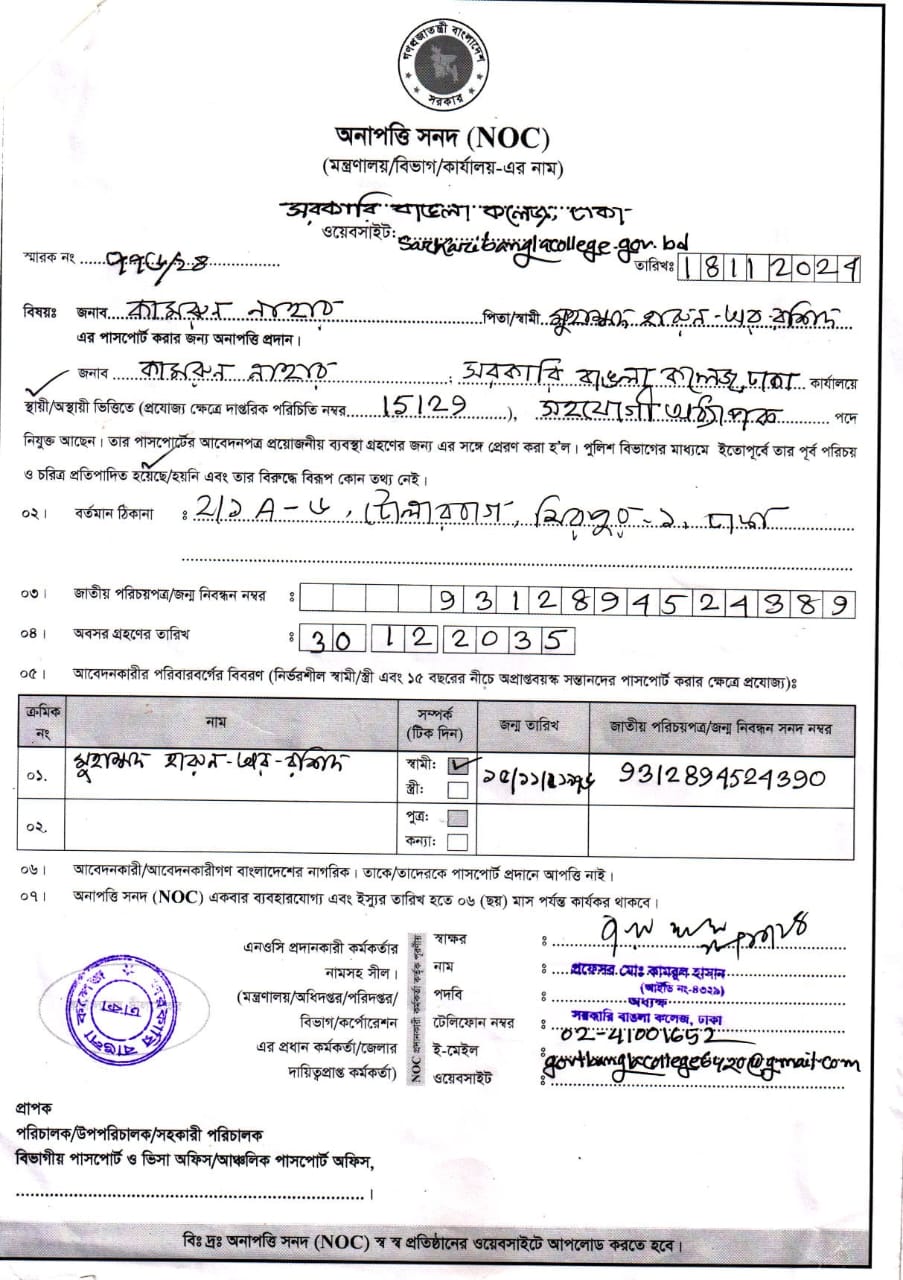 গণপ্রজাতন্ত্রী বাংলাদেশ
সরকার
অনাপত্তি সনদ (NOC)
(মন্ত্রণালয়/বিভাগ/কার্যালয়-এর নাম)
সরকারি বাঙলা কলেজ, ঢাকা
ওয়েবসাইট: sarkaribanglacollege.gov.bd
স্মারক নং ...... ৭৭৬/২৪
তারিখঃ 18112024
বিষয়ঃ জনাব.. কামরুন নাহার পিতা/স্বামী. মুহাম্মদ হারুন-অর-রশিদ
এর পাসপোর্ট করার জন্য অনাপত্তি প্রদান।
জনাব .. কামরুন নাহার ; সরকারি বাঙলা কলেজ, ঢাকা কার্যালয়ে
স্থায়ী/অস্থায়ী ভিত্তিতে (প্রযোজ্য ক্ষেত্রে দাপ্তরিক পরিচিতি নম্বর... 15129 ), সহযোগী অধ্যাপক পদে
নিযুক্ত আছেন। তার পাসপোর্টের আবেদনপত্র প্রয়োজনীয় ব্যবস্থা গ্রহণের জন্য এর সঙ্গে প্রেরণ করা হ'ল। পুলিশ বিভাগের মাধ্যমে ইতোপূর্বে তার পূর্ব পরিচয়
ও চরিত্র প্রতিপাদিত হয়েছে/হয়নি এবং তার বিরুদ্ধে বিরূপ কোন তথ্য নেই।
০২। বর্তমান ঠিকানা : 2/১ A-৬, টোলারবাগ, মিরপুর-১, ঢাকা
০৩। জাতীয় পরিচয়পত্র/জন্ম নিবন্ধন নম্বর : 9312894524389
০৪। অবসর গ্রহণের তারিখ : 30 12 2035
০৫। আবেদনকারীর পরিবারবর্গের বিবরণ (নির্ভরশীল স্বামী/স্ত্রী এবং ১৫ বছরের নীচে অপ্রাপ্তবয়স্ক সন্তানদের পাসপোর্ট করার ক্ষেত্রে প্রযোজ্য)ঃ
ক্রমিক নং নাম সম্পর্ক (টিক দিন) জন্ম তারিখ জাতীয় পরিচয়পত্র/জন্ম নিবন্ধন সনদ নম্বর
০১. মুহাম্মদ হারুন-অর-রশিদ স্বামী: 9312894524390
স্ত্রী:
০২. পুত্র:
কন্যা:
০৬। আবেদনকারী/আবেদনকারীগণ বাংলাদেশের নাগরিক। তাকে/তাদেরকে পাসপোর্ট প্রদানে আপত্তি নাই।
০৭। অনাপত্তি সনদ (NOC) একবার ব্যবহারযোগ্য এবং ইস্যুর তারিখ হতে ০৬ (ছয়) মাস পর্যন্ত কার্যকর থাকবে।
এনওসি প্রদানকারী কর্মকর্তার
নামসহ সীল।
(মন্ত্রণালয়/অধিদপ্তর/পরিদপ্তর/
বিভাগ/কর্পোরেশন
এর প্রধান কর্মকর্তা/জেলার
দায়িত্বপ্রাপ্ত কর্মকর্তা)
সরকারি বাঙলা কলেজ
ঢাকা
NOC প্রদানকারী কর্মকর্তা কর্তৃক পূরণীয়
স্বাক্ষর :
নাম : প্রফেসর মোঃ কামরুল হাসান
(আইডি নং-৪৩২১)
পদবি : অধ্যক্ষ
সরকারি বাঙলা কলেজ, ঢাকা
টেলিফোন নম্বর : 02-41001652
ই-মেইল : govtbanglacollege6420@gmail.com
ওয়েবসাইট :
প্রাপক
পরিচালক/উপপরিচালক/সহকারী পরিচালক
বিভাগীয় পাসপোর্ট ও ভিসা অফিস/আঞ্চলিক পাসপোর্ট অফিস,
।
বিঃ দ্রঃ অনাপত্তি সনদ (NOC) স্ব স্ব প্রতিষ্ঠানের ওয়েবসাইটে আপলোড করতে হবে।